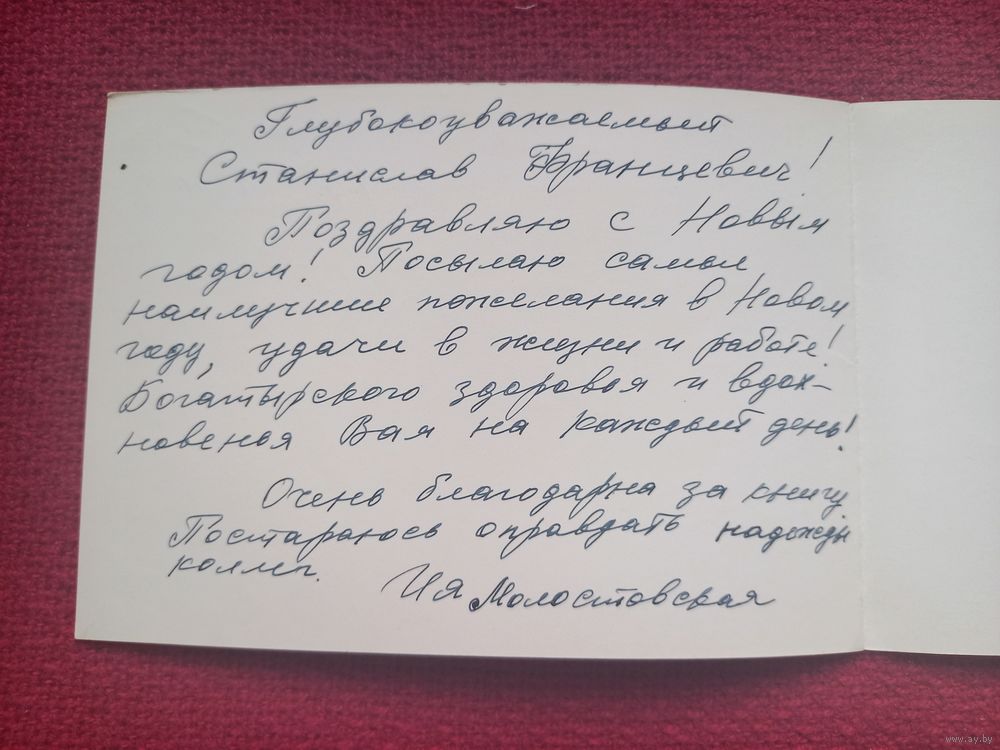 Глубокоуважаемый
Станислав Францевич!
Поздравляю с Новым
годом! Посылаю самые
наилучшие пожелания в Новом
году, удачи в жизни и работе!
Богатырского здоровья и вдох-
новенья Вам на каждый день!
Очень благодарна за книгу
Постараюсь оправдать надежды
коллег.
Ия Молостовская
www.ay.by